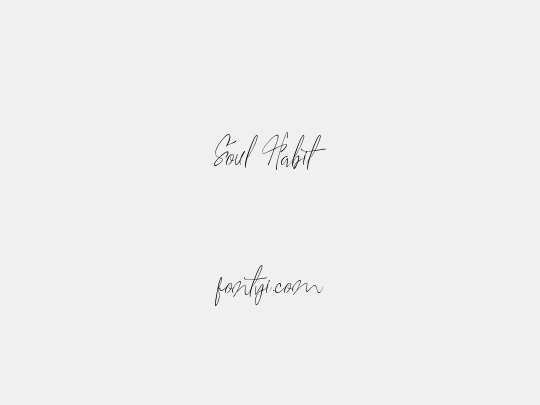 Soul Habit
fontgi.com